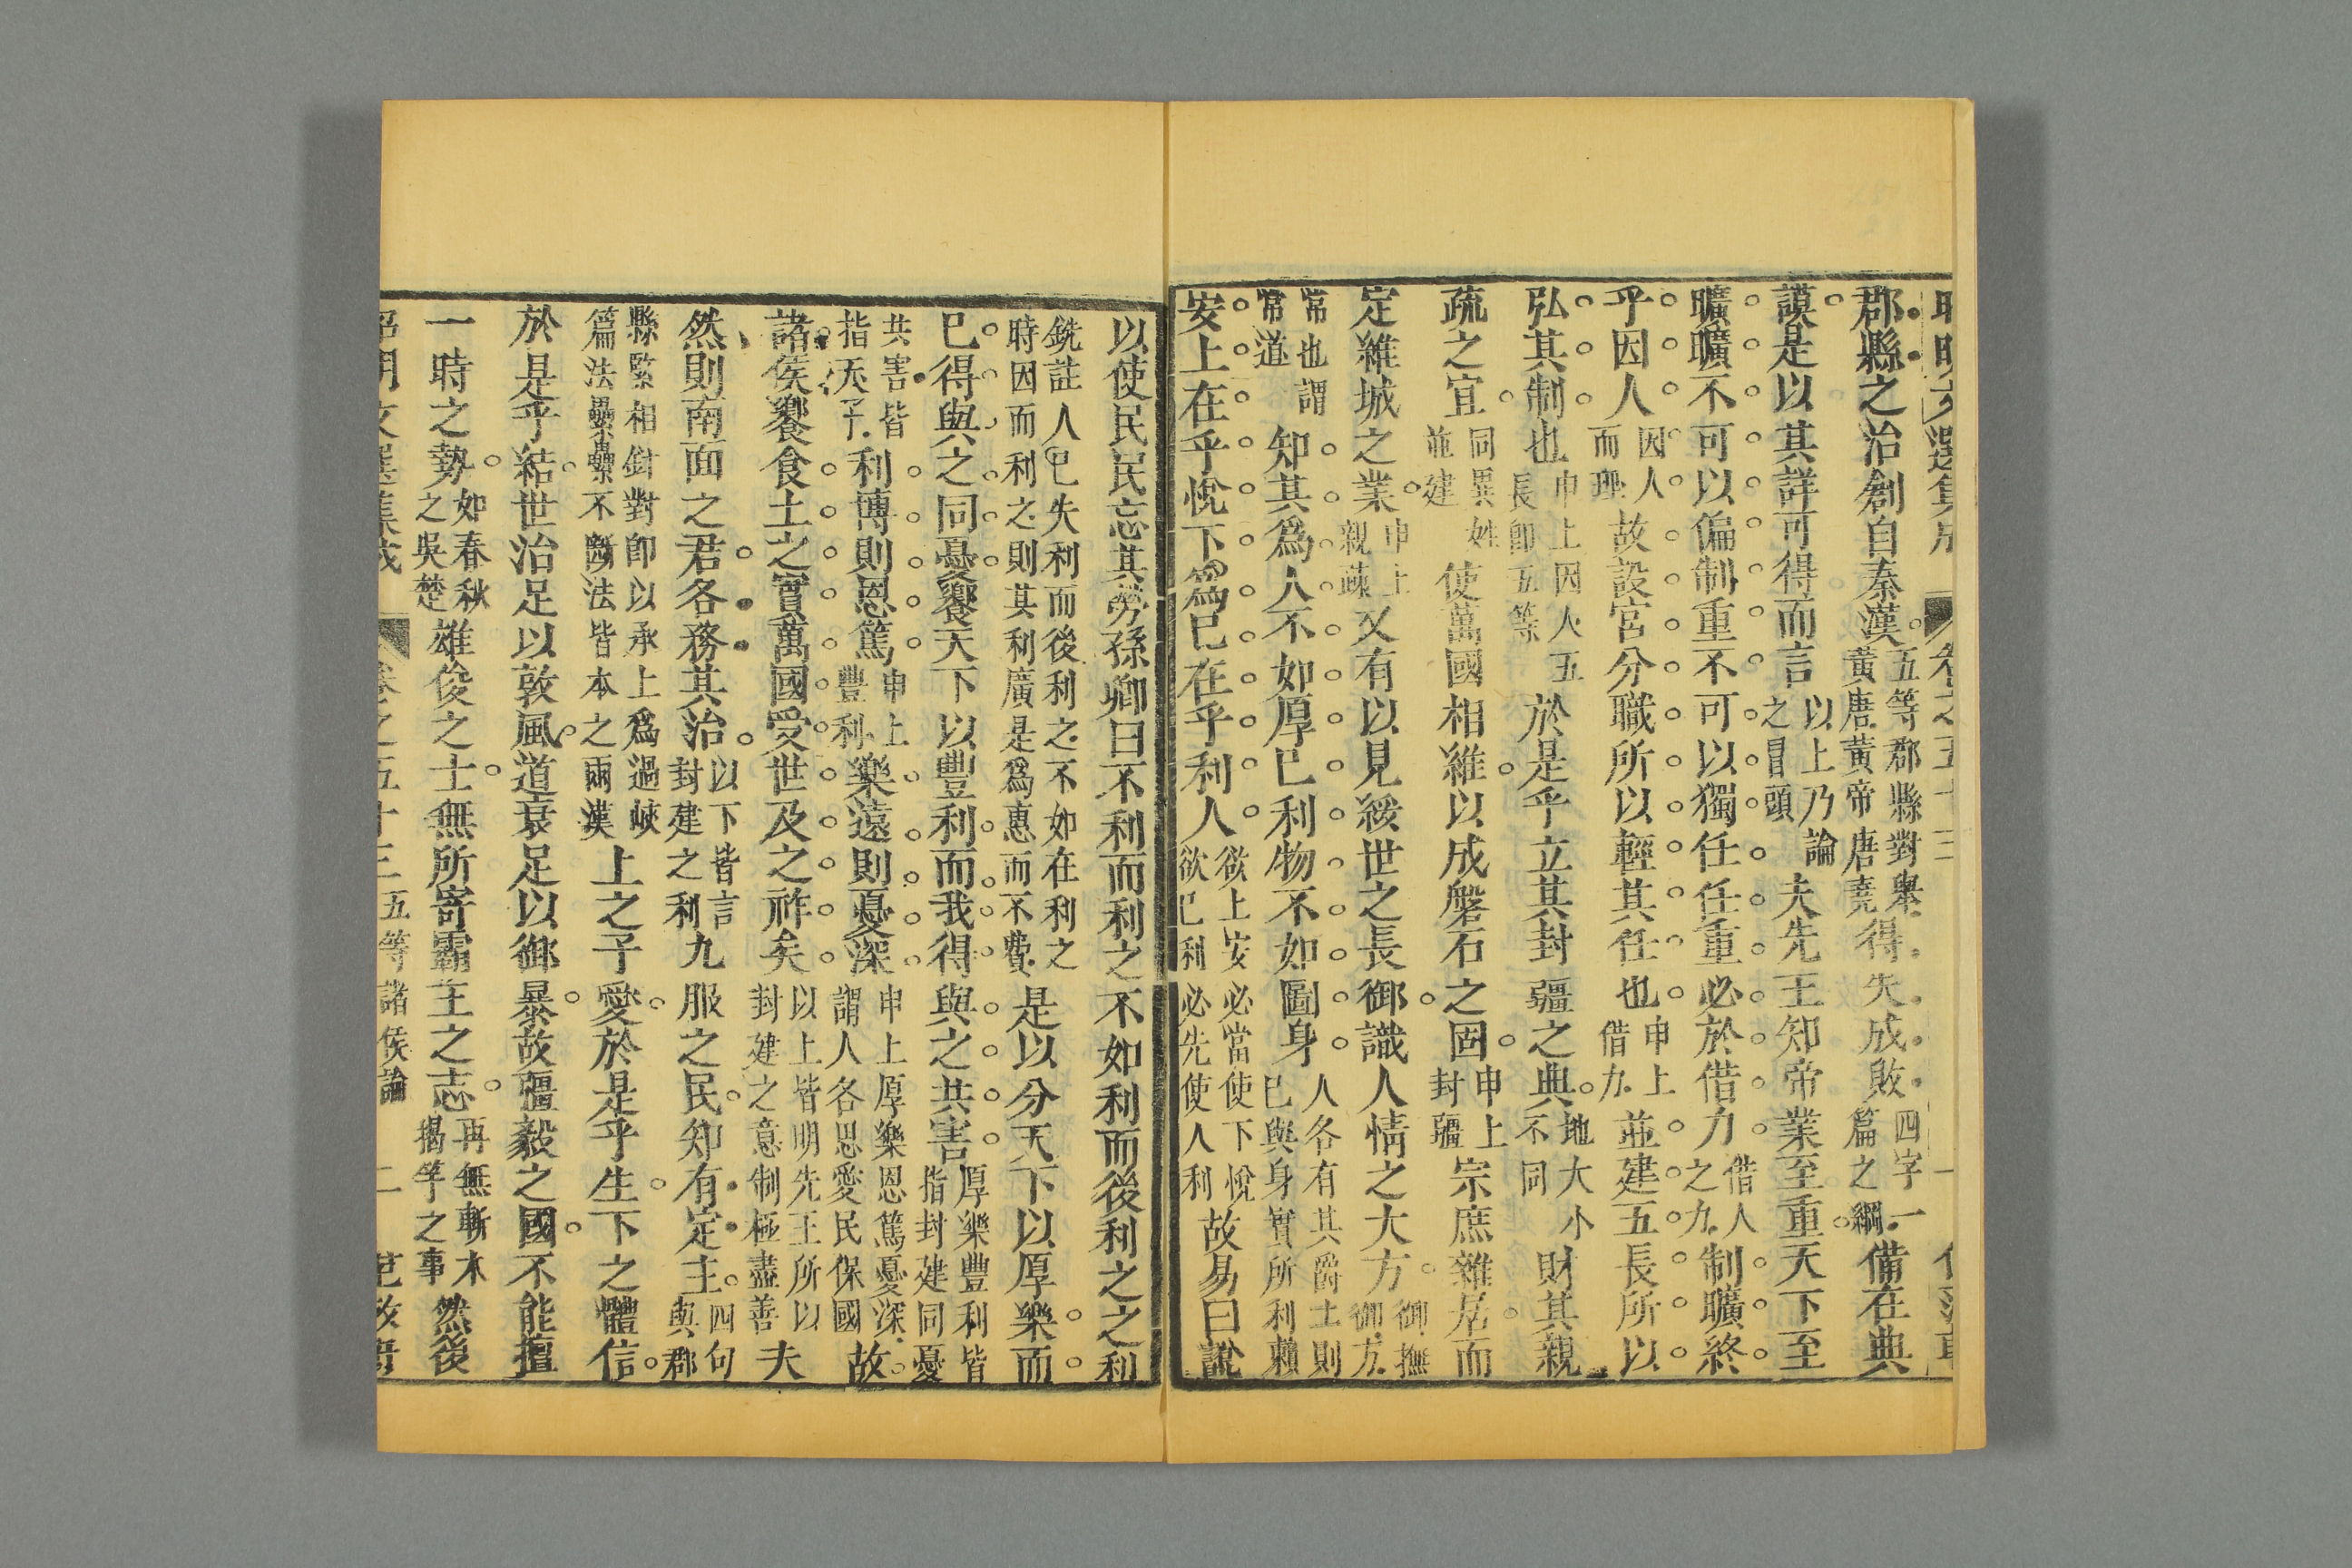 昭明文選集成 卷之五十三 一
郡縣之治創自秦漢五等郡縣對舉黃唐黃帝唐堯得失成敗四字一篇之綱備在典
謨是以其詳可得而言以上乃論之冒頭夫先王知帝業至重天下至
曠曠不可以偏制重不可以獨任任重必於借力借人之力制曠終
乎因人因人而理故設官分職所以輕其任也申上借力並建五長所以
弘其制也申上因人五長即五等於是乎立其封疆之典地大小不同財其親
疏之宜同異姓並建使萬國相維以成磐石之固申上封疆宗庶雜居而
定維城之業申上親疎又有以見綏世之長御識人情之大方御撫御方
常也謂常道知其爲人不如厚己利物不如圖身人各有其爵土則己與身實所利賴
安上在乎悅下爲己在乎利人欲上安必當使下悅欲己利必先使人利故易曰說
以使民民忘其勞孫卿曰不利而利之不如利而後利之之利
銑註人已失利而後利之不如在利之時因而利之則其利廣是爲惠而不費是以分天下以厚樂而
己得與之同憂饗天下以豐利而我得與之共害厚樂豐利皆指封建同憂
共害皆指天子利博則恩篤申上豐利樂遠則憂深申上厚樂恩篤憂深謂人各思愛民保國故
諸侯饗食土之實萬國受世及之祚矣以上皆明先王所以封建之意制極盡善夫
然則南面之君各務其治以下皆言封建之利九服之民知有定主四句與郡
縣緊相針對即以承上爲過峽篇法纍纍不斷法皆本之兩漢上之子愛於是乎生下之體信
於是乎結世治足以敦風道衰足以御暴故疆毅之國不能擅
一時之勢如春秋之吳楚雄俊之士無所寄霸王之志再無斬木揭竿之事然後
昭明文選集成 卷之五十三五等諸侯論 二